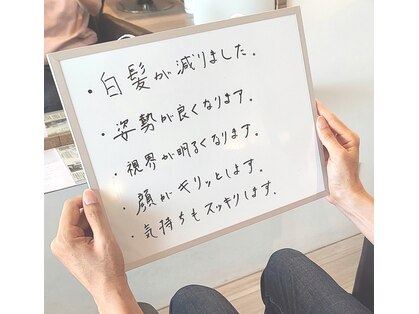 ・白髪が減りました.
・姿勢が良くなります.
・視界が明るくなります.
・顔がキリッとします.
・気持ちもスッキリします.